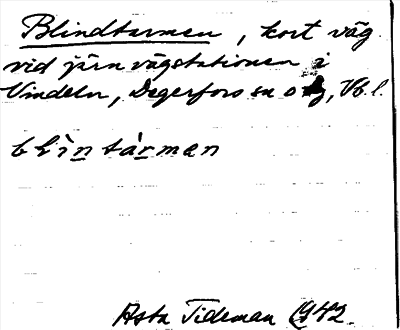 Blindtarmen, kort väg
vid järnvägstationen i
Vindeln, Degerfors sn o , Vb. l.
blìntármen
Asta Tideman 1942.